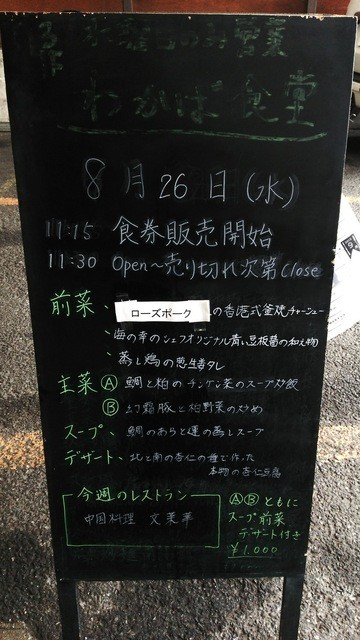 わかば食堂
8月26日(水)
11:15 食券販売開始
11:30 Open〜売り切れ次第Close
前菜、ローズポーク の香港式釜焼チャーシュー
、海の幸のシェフオリジナル青い豆板醤の和え物
、蒸し鶏の葱生姜タレ
主菜Ⓐ 鯛と柏のチンゲン菜のスープ炒飯
Ⓑ 幻霜豚と柏野菜の炒め
スープ、鯛のあらと蓮の蒸しスープ
デザート、北と南の杏仁の種で作った
本物の杏仁豆腐
今週のレストラン
中国料理 文菜華
ⒶⒷともに
スープ前菜
デザート付き
¥1,000